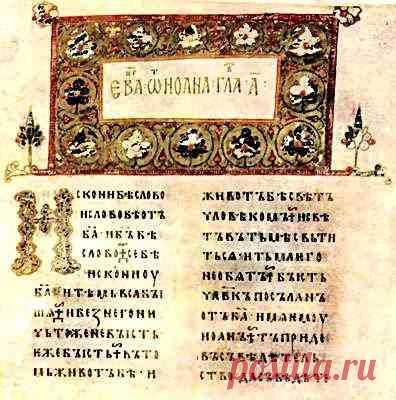 ЕВА҃ ѾИОАНА ГЛА А҃
ИСКОНИБѢСЛОВО
ИСЛОВОБѢОТЪ
БА҃ИБЪ҃БѢ
СЛОВО⁘СЕБѢ
ИСКОНИОУ
БА҃ИТѢМЬВСѦБЫ
ШѦ⁘ИБЕЗНЕГОНИ
ЧЬТОЖЕНЕБЫСТЬ
ИЖЕБЫСТЬ⁘ВЪТО
МЬЖИВОТЪБѢ·И
ЖИВОТЪБѢСВѢТЪ
ЧЛОВѢКОМЪ⁘ИСВѢ
ТЪВЪТЬМѢСВЬТИ
ТЬСѦ·ИТЬМАѤГО
НЕОБѦТЪ⁘БЫСТЬ
ЧЛ҃ВКЪПОСЪЛАНЪ
ОТЪБА҃·ИМѦѤМОУ
ИОАНЪ⁘ТЪПРИДЕ
ВЪСЪВѢДѢТЕЛЬ
СТВО·ДАСЪВѢДѢТЕ
postila.ru